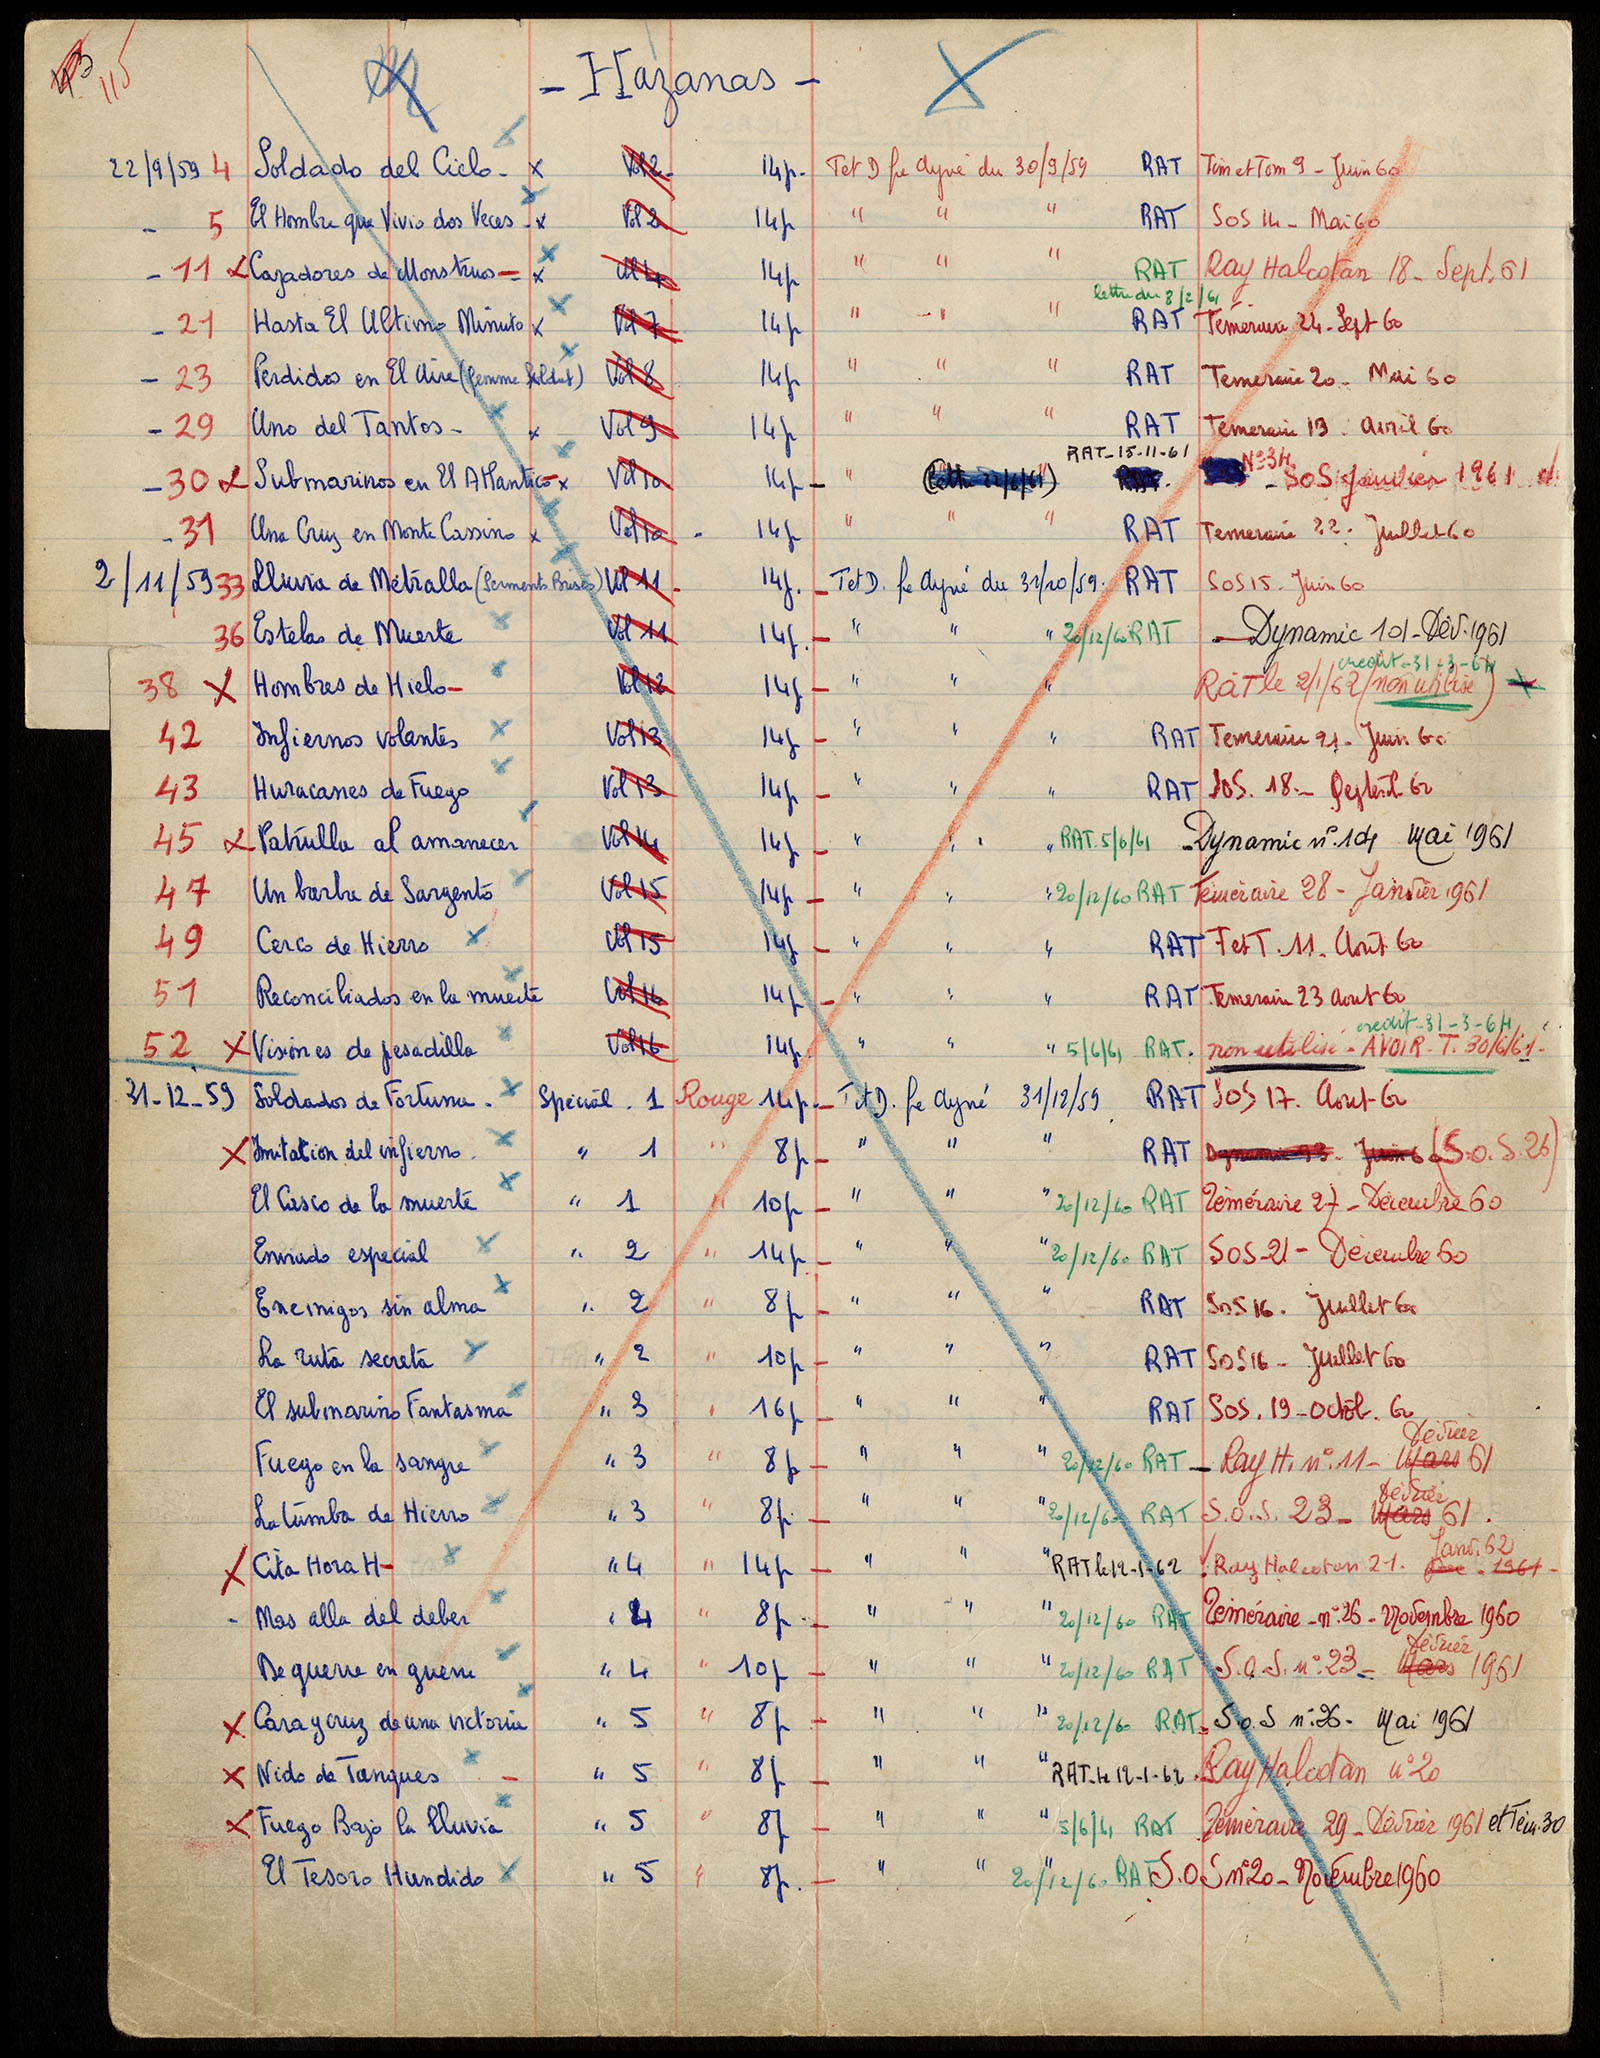 115
- Hazanas -
22/9/59 4 Soldado del Cielo - x Vol 2 - 14p - Tet D fe Ayné du 30/9/59 RAT Tim et Tom 9 - Juin 60
- 5 El Hombre que Vivio dos Veces - x Vol 2 14p " " " RAT SOS 14 - Mai 60
- 11 x Cazadores de Monstruos - x Vol 4 14p " " " RAT Ray Halcotan 18 - Sept. 61
lettre du 8/2/61
- 21 Hasta El Ultimo Minuto x Vol 7 14p " " " RAT Temeraire 24 - Sept 60
- 23 Perdidos en El Aire (femme Soldat) Vol 8 14p " " " RAT Temeraire 20 - Mai 60
- 29 Uno del Tantos - x Vol 9 14p " " " RAT Temeraire 19 - Avril 60
RAT - 15-11-61
- 30 x Submarinos en El Atlantico - x Vol 10 14p - " (lettre 22/6/61) RAT. N° 34 - SOS Janvier 1961
- 31 Una Cruz en Monte Cassino x Vol 10 - 14p " " " RAT Temeraire 22 - Juillet 60
2/11/59 33 Lluvia de Metralla (Serments Brisés) Vol 11 - 14p. - Tet D. fe Ayné du 31/10/59. RAT SOS 15 - Juin 60
36 Estelas de Muerte Vol 11 14p. - " " " 20/12/60 RAT - Dynamic 101 - Fév. 1961
credit - 31-3-64
38 X Hombres de Hielo - Vol 12 14p - " " " RAT le 2/1/62 (non utilisé)
42 Infiernos volantes x Vol 13 14p - " " " RAT Temeraire 21 - Juin 60
43 Huracanes de Fuego Vol 13 14p - " " " RAT SOS. 18 - Septemb 60
45 x Patrulla al amanecer Vol 14 14p - " " " RAT. 5/6/61 - Dynamic n° 104 Mai 1961
47 Un barba de Sargento Vol 15 14p - " " " 20/12/60 RAT Téméraire 28 - Janvier 1961
49 Cerco de Hierro x Vol 15 14p - " " " RAT T et T. 11 - Août 60
51 Reconciliados en la muerte Vol 16 14p - " " " RAT Temeraire 23 Aout 60
credit - 31-3-64
52 X Visiones de pesadilla x Vol 16 14p " " " 5/6/61 RAT. non utilisé - AVOIR - T. 30/6/61 -
31-12-59 Soldados de Fortuna - x Special - 1 Rouge 14p - Tet D. fe Ayné 31/12/59 RAT SOS 17 - Aout 60
X Imitation del infierno - x " 1 " 8p - " " " RAT Dynamic 93 - Juin 60 (S.O.S. 26)
El Casco de la muerte x " 1 " 10p - " " " 20/12/60 RAT Téméraire 27 - Décembre 60
Enviado especial x " 2 " 14p - " " " 20/12/60 RAT SOS - 21 - Décembre 60
Enemigos sin alma x " 2 " 8p - " " " RAT SOS 16 - Juillet 60
La ruta secreta x " 2 " 10p - " " " RAT SOS 16 - Juillet 60
El submarino Fantasma x " 3 " 16p - " " " RAT SOS. 19 - Octob. 60
Février
Fuego en la sangre x " 3 " 8p - " " " 20/12/60 RAT - Ray H. n° 11 - Mars 61
Février
La tumba de Hierro x " 3 " 8p - " " " 20/12/60 RAT S.O.S. 23 - Mars 61.
Janv. 62
X Cita Hora H - x " 4 " 14p - " " " RAT le 12-1-62 Ray Halcotan 21. 1961 -
- Mas alla del deber x " 4 " 8p - " " " 20/12/60 RAT Téméraire - n° 26 - Novembre 1960
Février
De guerre en guerre x " 4 " 10p - " " " 20/12/60 RAT S.O.S. n° 23 - Mars 1961
X Cara y cruz de una victoria x " 5 " 8p - " " " 20/12/60 RAT - S.O.S n° 26 - Mai 1961
X Nido de Tanques x - " 5 " 8p - " " " RAT le 12-1-62. Ray Halcotan n° 20
X Fuego Bajo la Lluvia x " 5 " 8p - " " " 5/6/61 RAT Téméraire 29 - Février 1961 et Tém. 30
El Tesoro Hundido x " 5 " 8p. - " " " 20/12/60 RAT S.O.S n° 20 - Novembre 1960